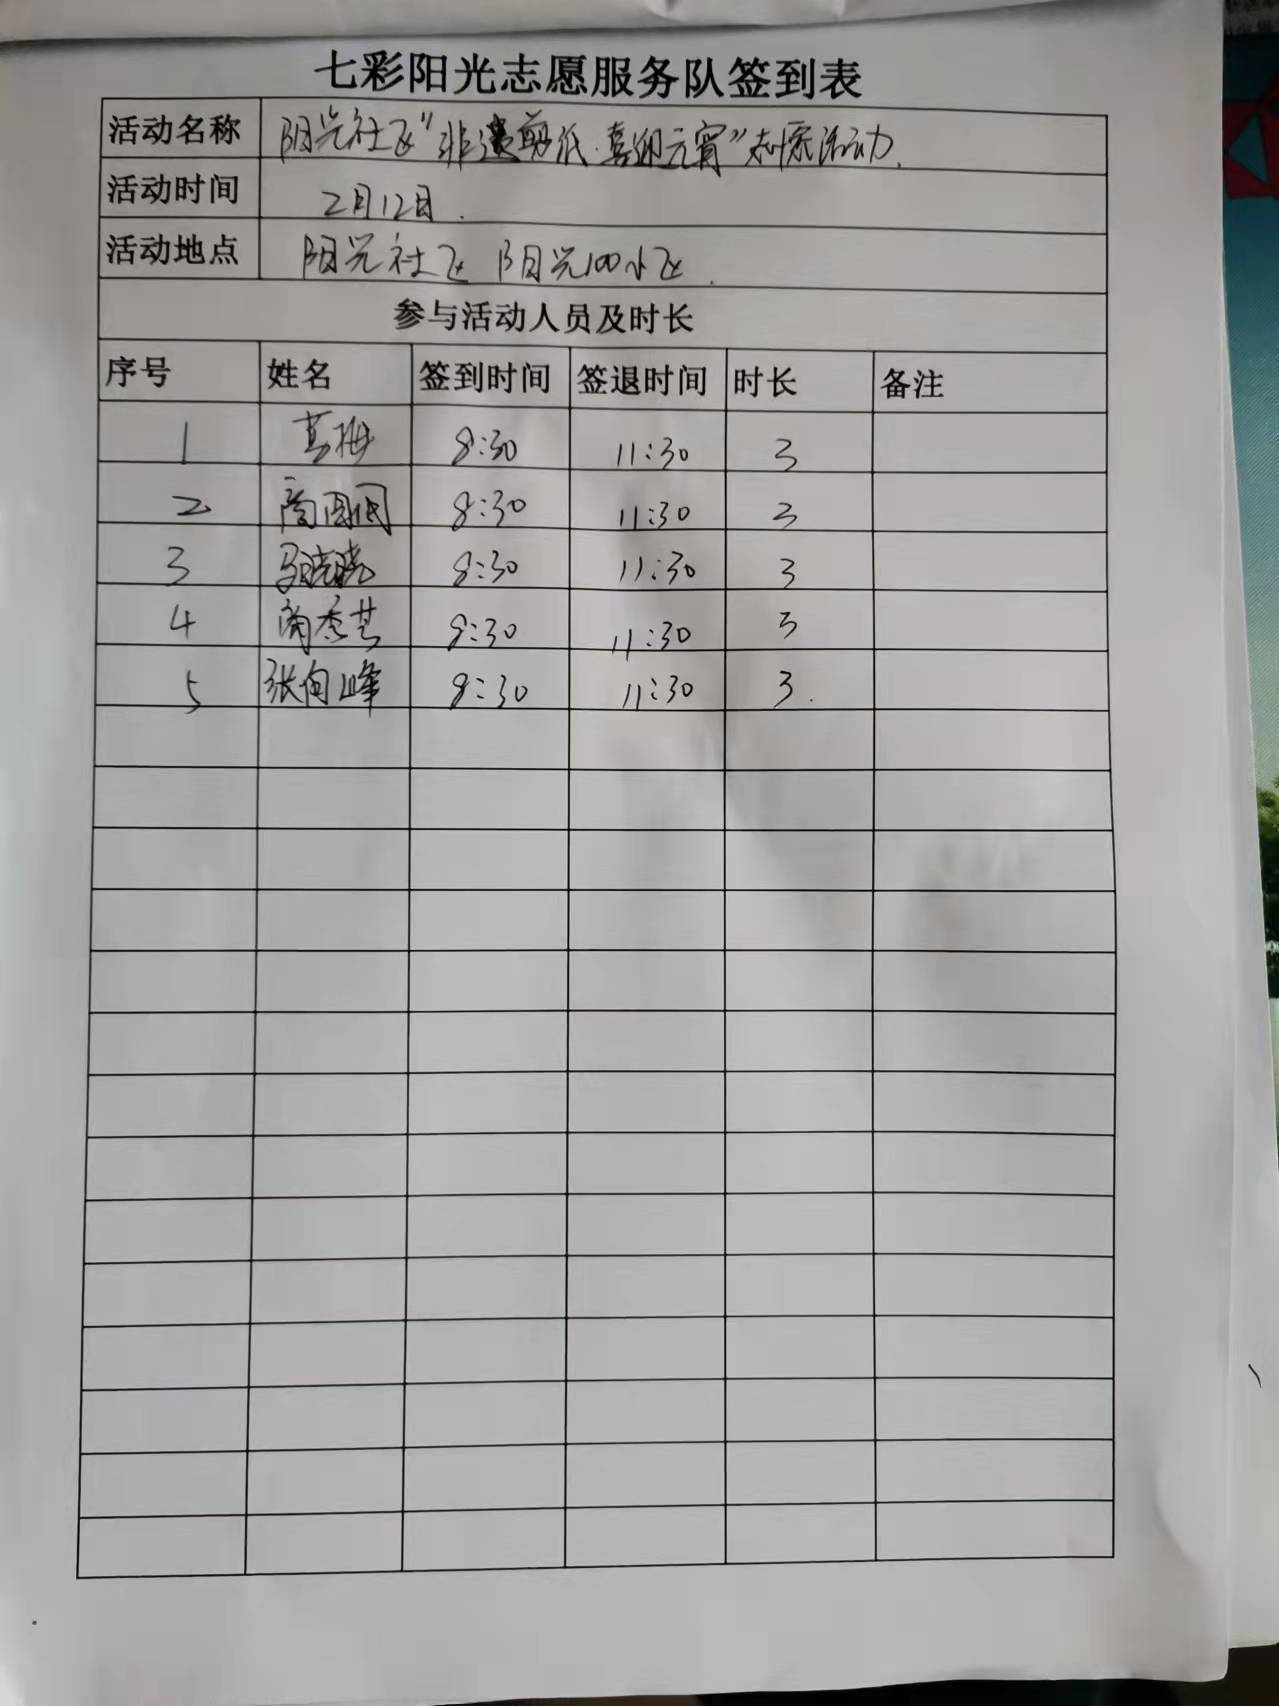 七彩阳光志愿服务队签到表
活动名称 阳光社区“非遗剪纸·喜迎元宵”志愿活动.
活动时间 2月12日.
活动地点 阳光社区 阳光100小区.
参与活动人员及时长
序号 姓名 签到时间 签退时间 时长 备注
1 8:30 11:30 3
2 8:30 11:30 3
3 马晓晓 8:30 11:30 3
4 8:30 11:30 3
5 张向峰 8:30 11:30 3.